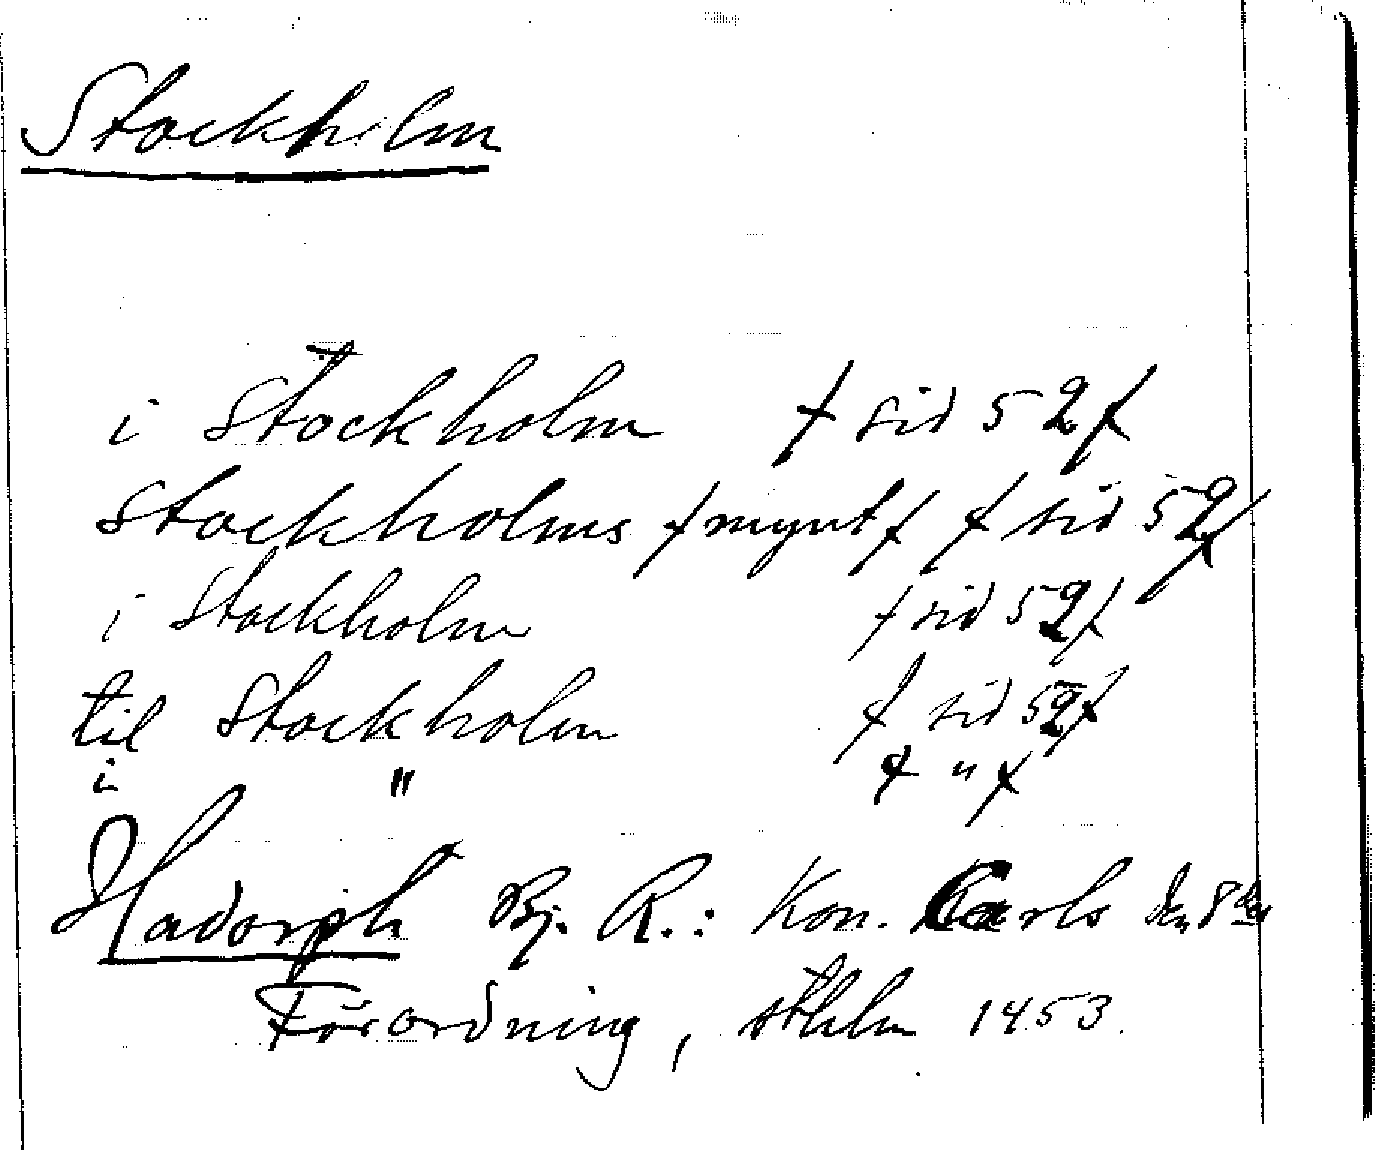 Stockholm
i Stockholm / sid 52/
Stockholms /mynt/ / sid 52/
i Stockholm / sid 52/
til Stockholm / sid 52/
i " / " /
Hadorph Bj. R.: Kon. Carls den 8de
Förordning, Sthlm 1453.